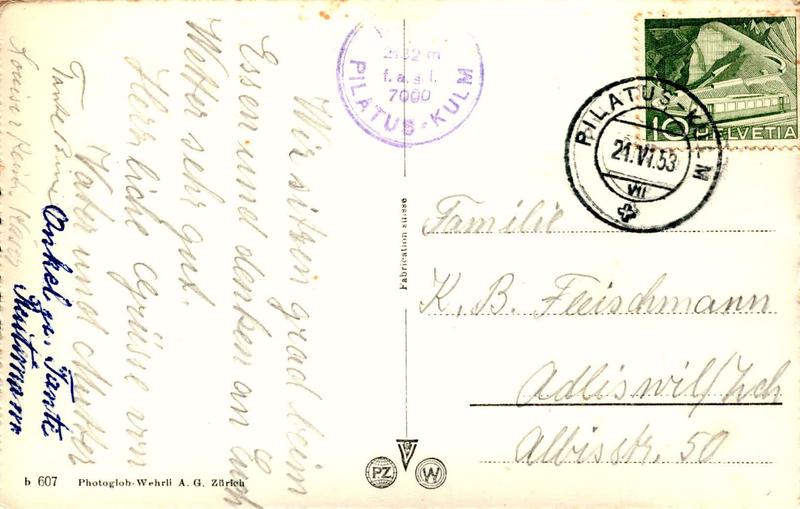 Wir sitzen grad beim
Essen und denken an Euch
Wetter sehr gut.
Herzliche Grüsse von
Vater und Mutter
Tante
Onkel u. Tante
2132 m
f. a. s. l.
7000
PILATUS-KULM
10 HELVETIA
PILATUS-KULM
21.VI.53
VII
Fabrication suisse
Familie
K. B. Fleischmann
Adliswil/Zch
Albisstr. 50
b 607 Photoglob-Wehrli A. G. Zürich
PZ W